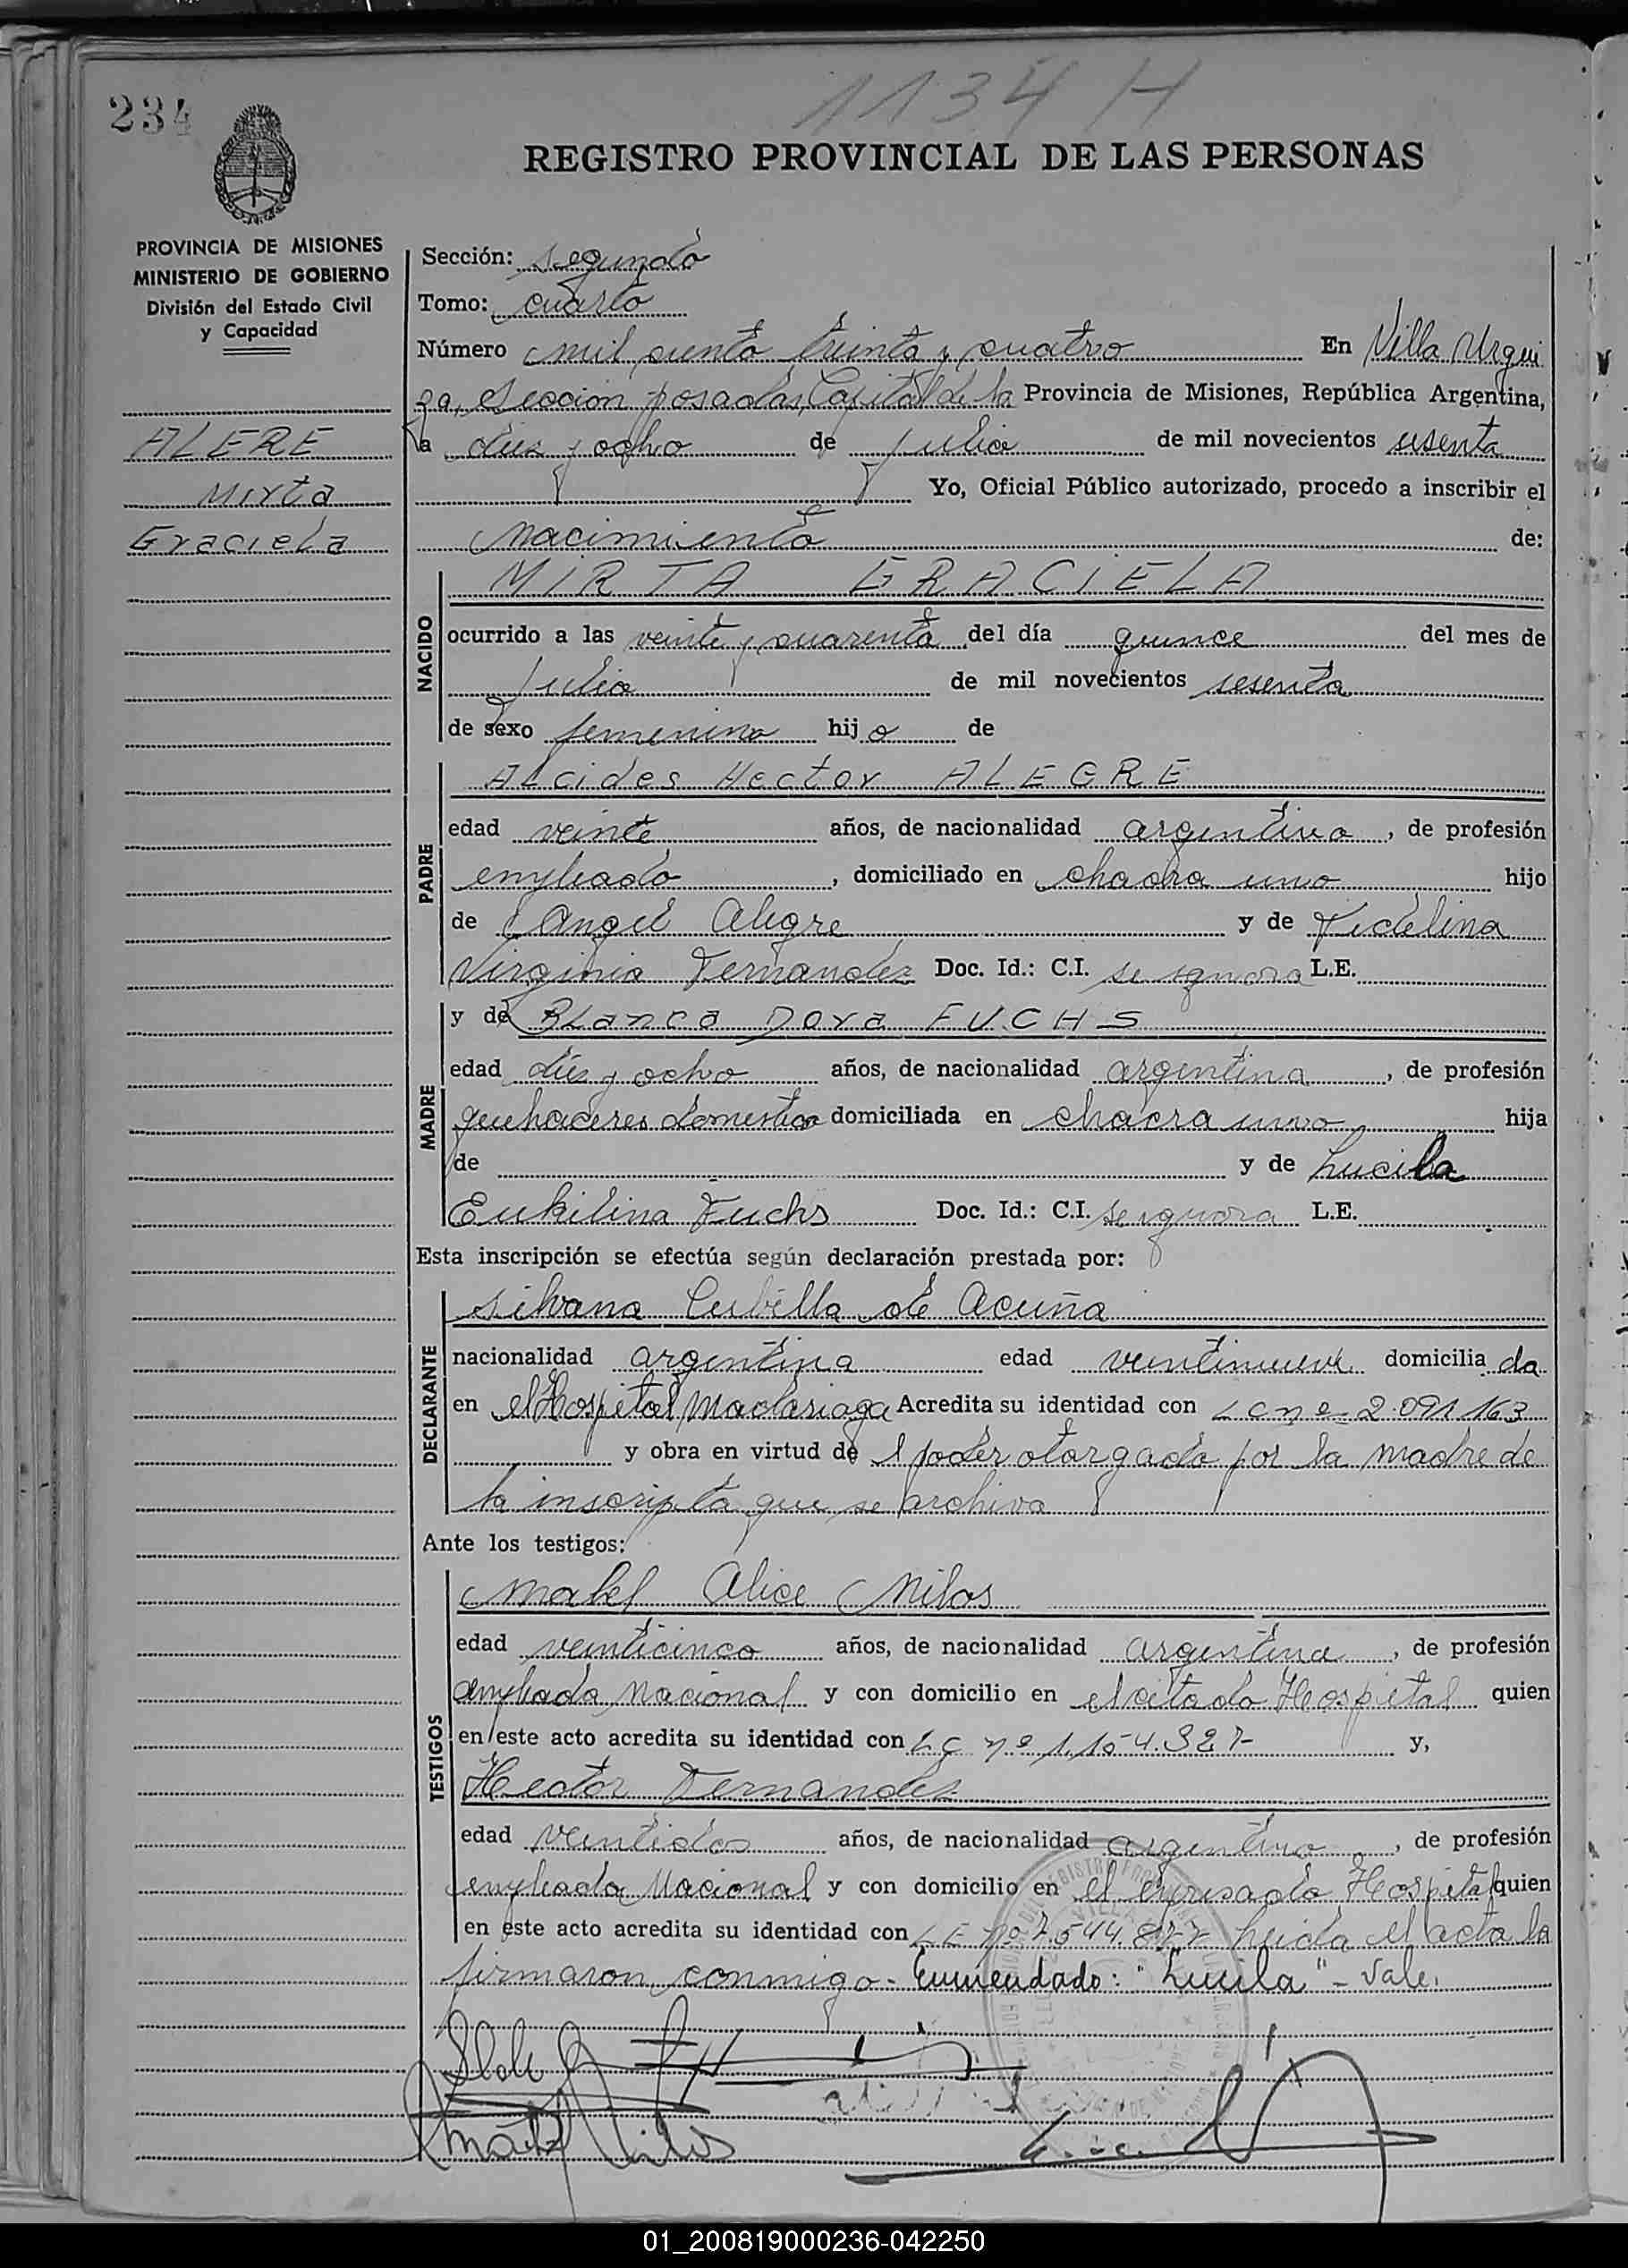 1134 H
234
REGISTRO PROVINCIAL DE LAS PERSONAS
PROVINCIA DE MISIONES
MINISTERIO DE GOBIERNO
División del Estado Civil
y Capacidad
ALERE
Mirta
Graciela
Sección: segunda
Tomo: cuarto
Número mil ciento treinta y cuatro En Villa Urqui
za, Sección posadas, Capital de la Provincia de Misiones, República Argentina,
a diez y ocho de julio de mil novecientos sesenta
Yo, Oficial Público autorizado, procedo a inscribir el
Nacimiento de:
NACIDO
MIRTA GRACIELA
ocurrido a las veinte y cuarenta del día quince del mes de
Julio de mil novecientos sesenta
de sexo femenino hij a de
PADRE
Alcides Hector ALEGRE
edad veinte años, de nacionalidad argentino, de profesión
empleado, domiciliado en chacra uno hijo
de Angel Alegre y de Fidelina
Virginia Fernandez Doc. Id.: C.I. se ignora L.E.
MADRE
y de Blanca Dora FUCHS
edad diez y ocho años, de nacionalidad argentina, de profesión
quehaceres domestico domiciliada en chacra uno hija
de y de Lucila
Eukilina Fuchs Doc. Id.: C.I. se ignora L.E.
Esta inscripción se efectúa según declaración prestada por:
DECLARANTE
Silvana Cubilla de Acuña
nacionalidad argentina edad veintinueve domicilia da
en el Hospital Madariaga Acredita su identidad con LC nº 2.091.163
y obra en virtud de l poder otorgado por la madre de
la inscripta que se archiva
Ante los testigos:
TESTIGOS
Mabel Alice Milos
edad veinticinco años, de nacionalidad argentina, de profesión
empleada Nacional y con domicilio en el citado Hospital quien
en este acto acredita su identidad con LC nº 1.154.327 y,
Hector Fernandez
edad veintidos años, de nacionalidad argentino, de profesión
empleado Nacional y con domicilio en el expresado Hospital quien
en este acto acredita su identidad con LE Nº 7.544.877 Leida el acta la
firmaron conmigo - Enmendado: "Lucila" - Vale.
01_200819000236-042250